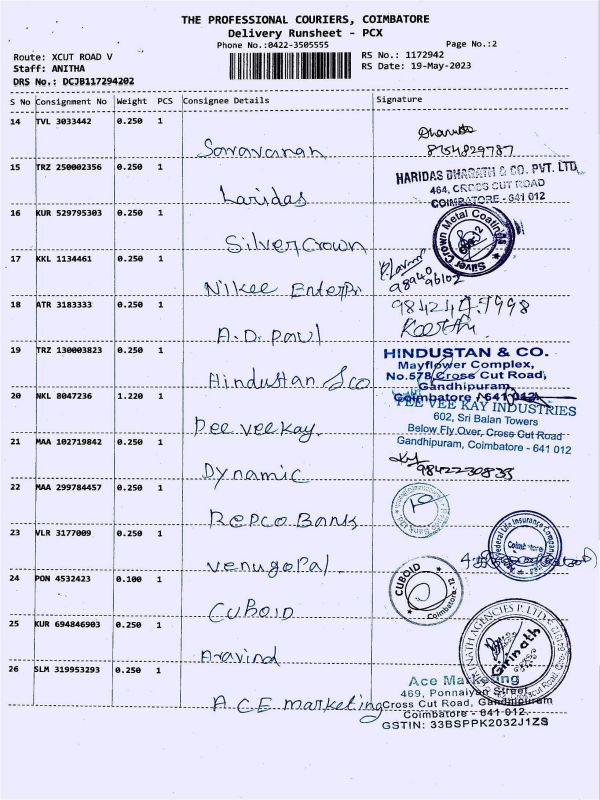 THE PROFESSIONAL COURIERS, COIMBATORE
Delivery Runsheet - PCX
Phone No.:0422-3505555
Page No.:2
Route: XCUT ROAD V
RS No.: 1172942
Staff: ANITHA
RS Date: 19-May-2023
DRS No.: DCJB117294202
S No Consignment No Weight PCS Consignee Details Signature
14 TVL 3033442 0.250 1
Saravanan
8754829787
15 TRZ 250002356 0.250 1
Haridas
HARIDAS BHARATH & CO. PVT. LTD
464, CROSS CUT ROAD
COIMBATORE - 641 012
16 KUR 529795303 0.250 1
Silver Crown
Silver Crown Metal Coatings
17 KKL 1134461 0.250 1
Nikee Enterpri
98940
96102
18 ATR 3183333 0.250 1
A.D. Paul
19 TRZ 130003823 0.250 1
Hindustan &co
HINDUSTAN & CO.
Mayflower Complex,
No.578, Cross Cut Road,
Gandhipuram,
Coimbatore - 641 012.
20 NKL 8047236 1.220 1
Pee vee kay.
PEE VEE KAY INDUSTRIES
602, Sri Balan Towers
Below Fly Over, Cross Cut Road
Gandhipuram, Coimbatore - 641 012
21 MAA 102719842 0.250 1
Dynamic
9842230833
22 MAA 299784457 0.250 1
Repco Bank
23 VLR 3177009 0.250 1
Venugopal
Federal Life Insurance Company
Coimbatore
24 PON 4532423 0.100 1
CUBOID
CUBOID
Coimbatore - 12
25 KUR 694846903 0.250 1
Aravind
Girinath
26 SLM 319953293 0.250 1
ACE marketing
Ace Marketing
469, Ponnaiyan Street,
Cross Cut Road, Gandhipuram
Coimbatore - 641 012.
GSTIN: 33BSPPK2032J1ZS